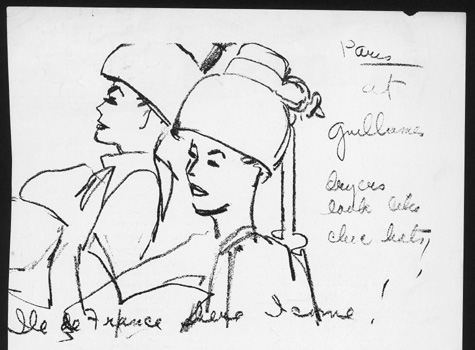 Paris
at
Guillaumes
dryers
look like
chic hats
!
Ile de France here I come!